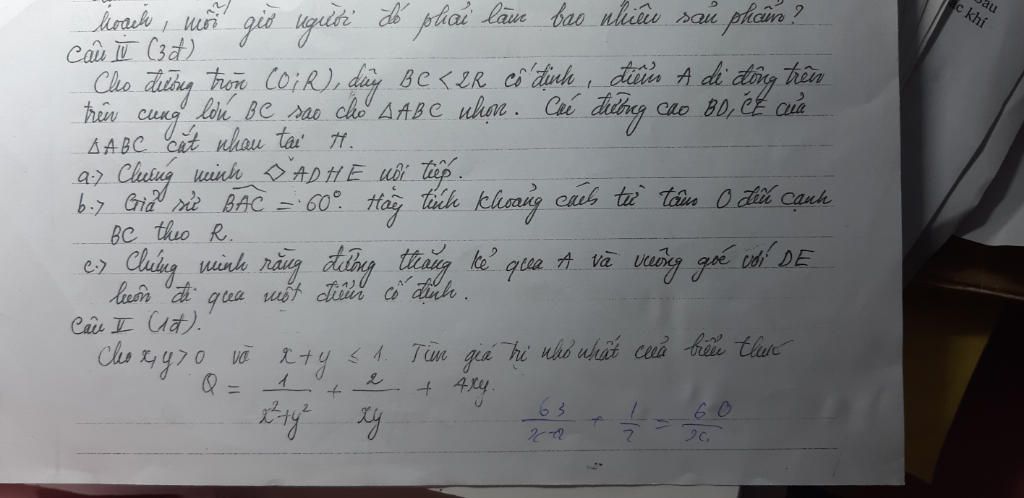 hoạch, mỗi giờ người đó phải làm bao nhiêu sản phẩm?
Câu IV (3đ)
Cho đường tròn (O;R), dây BC < 2R cố định, điểm A di động trên
trên cung lớn BC sao cho ΔABC nhọn. Các đường cao BD, CE của
ΔABC cắt nhau tại H.
a.> Chứng minh ◇ ADHE nội tiếp.
b.> Giả sử BAC = 60°. Hãy tính khoảng cách từ tâm O đến cạnh
BC theo R.
c.> Chứng minh rằng đường thẳng kẻ qua A và vuông góc với DE
luôn đi qua một điểm cố định.
Câu V (1đ).
Cho x,y > 0 và x+y ≤ 1. Tìm giá trị nhỏ nhất của biểu thức
Q = 1/(x²+y²) + 2/(xy) + 4xy.
+ 1/2 =
khí